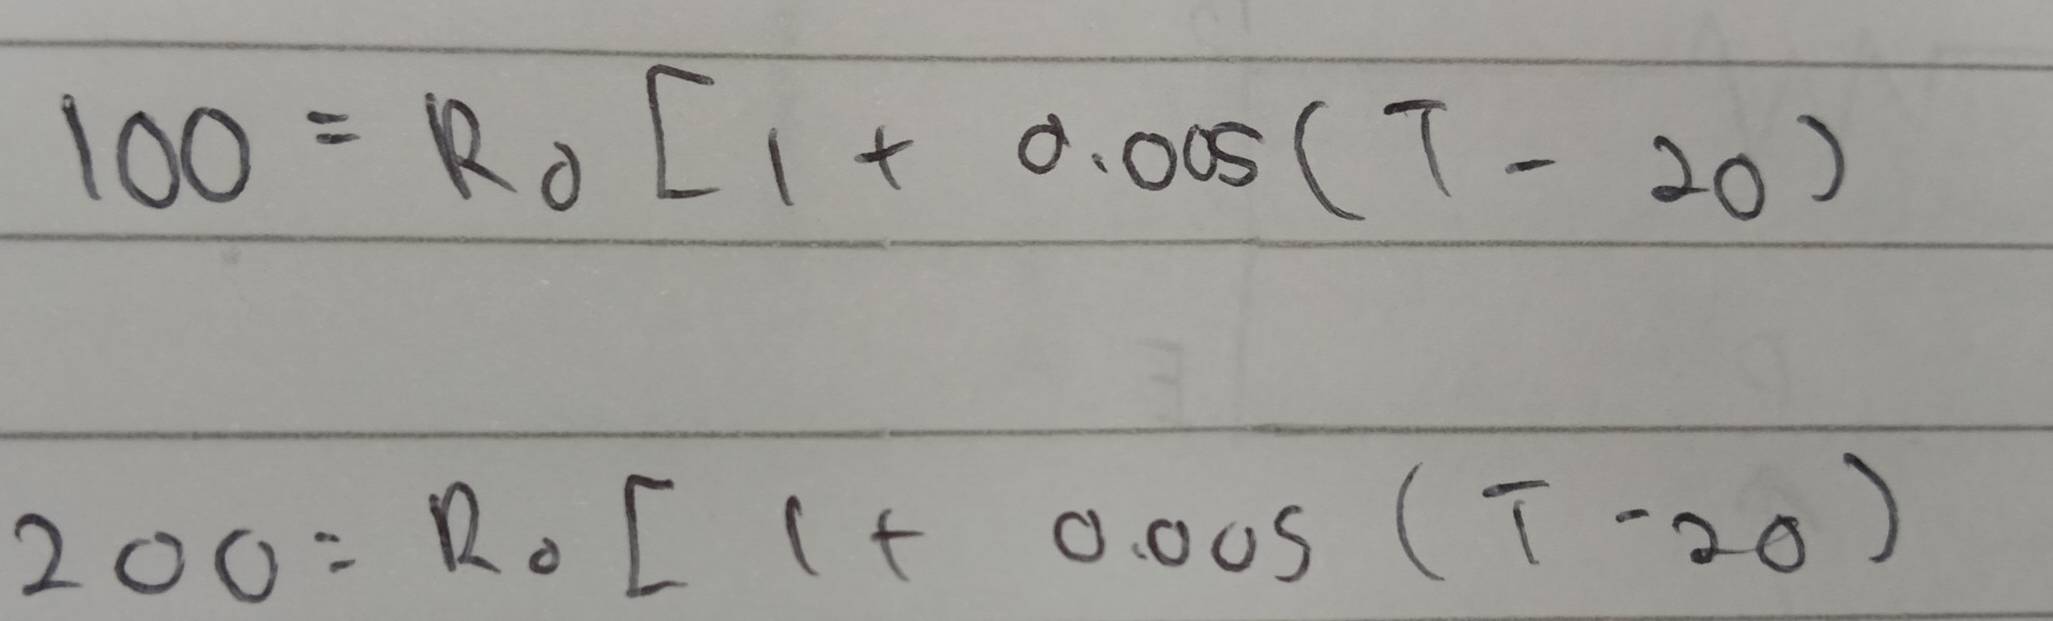 100 = R₀ [ 1 + 0.005 ( T - 20 )
200 = R₀ [ 1 + 0.005 ( T - 20 )